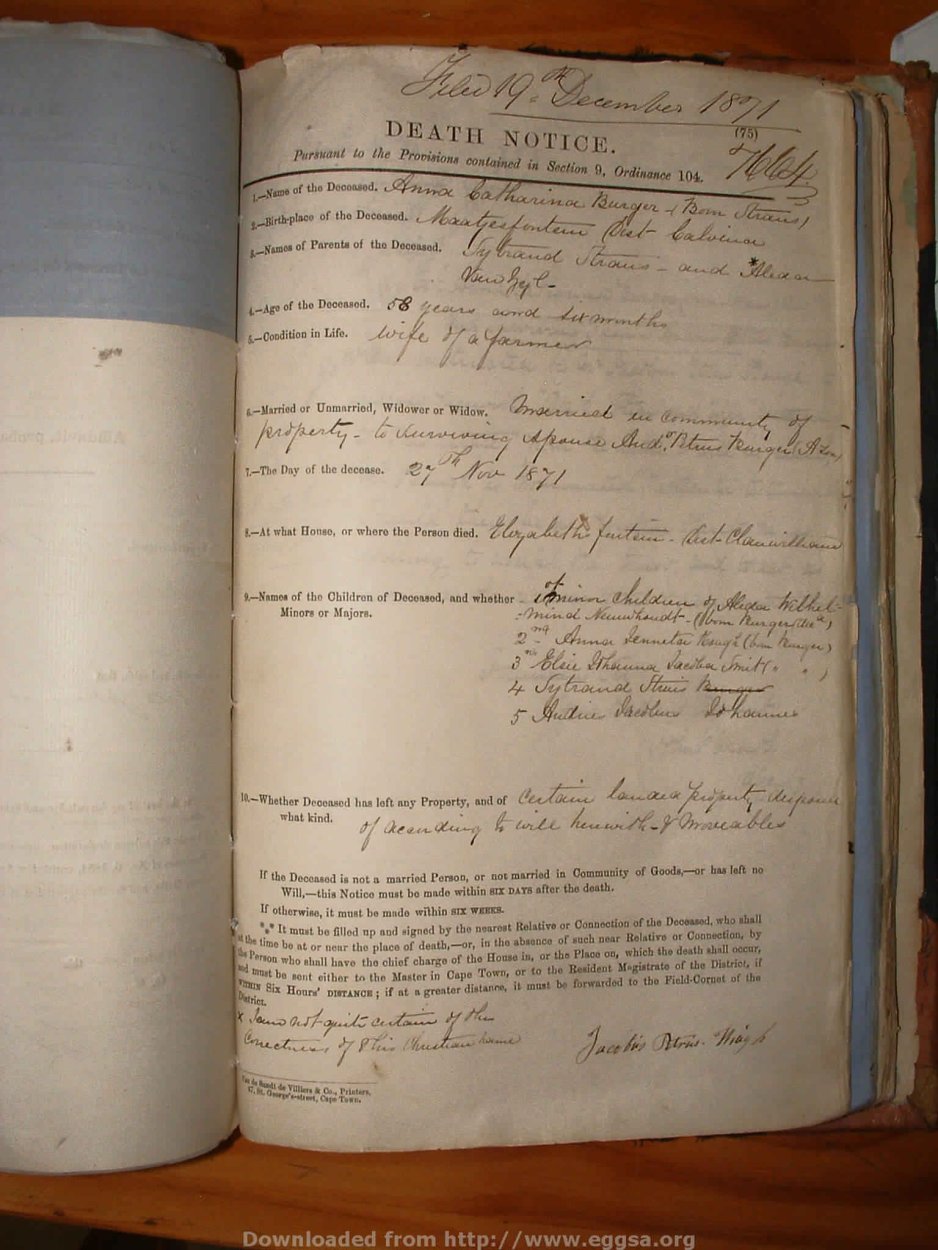 Filed 19th December 1871
(75)
DEATH NOTICE.
7664
Pursuant to the Provisions contained in Section 9, Ordinance 104.
1.—Name of the Deceased. Anna Catharina Burger (Born Straus)
2.—Birth-place of the Deceased. Maatjesfontein Dist Calvinia
3.—Names of Parents of the Deceased. Sybrand Straus – and *Aleda
Van Zyl –
4.—Age of the Deceased. 58 years and six months
5.—Condition in Life. Wife of a farmer
6.—Married or Unmarried, Widower or Widow. Married in Community of
property – to surviving spouse And. Petrus Burger
7.—The Day of the decease. 27th Nov 1871
8.—At what House, or where the Person died. Elizabeth fontein – Dist Clanwilliam
9.—Names of the Children of Deceased, and whether minor Children of Aleda Wilhel-
Minors or Majors. mina Nieuwhoudt – (born Burger
2nd Anna (born Burger)
3 Elsie Johanna Jacoba Smit ( " " )
4 Sybrand Straus Burger
5 Andries Jacobus Johannes
10.—Whether Deceased has left any Property, and of Certain landed property disposed
what kind. of according to will herewith – & Moveables
If the Deceased is not a married Person, or not married in Community of Goods,—or has left no
Will,—this Notice must be made within SIX DAYS after the death.
If otherwise, it must be made within SIX WEEKS.
*** It must be filled up and signed by the nearest Relative or Connection of the Deceased, who shall
at the time be at or near the place of death,—or, in the absence of such near Relative or Connection, by
the Person who shall have the chief charge of the House in, or the Place on, which the death shall occur,
and must be sent either to the Master in Cape Town, or to the Resident Magistrate of the District, if
WITHIN SIX HOURS' DISTANCE; if at a greater distance, it must be forwarded to the Field-Cornet of the
District.
x I am not quite certain of the
Correctness of this Christian name
Jacobus Petrus
Van de Sandt de Villiers & Co., Printers,
47, St. George's-street, Cape Town.
Downloaded from http://www.eggsa.org